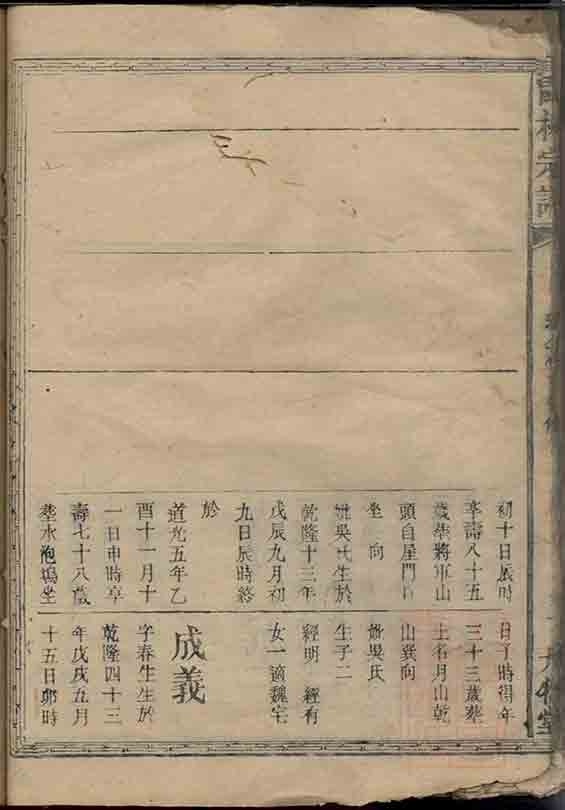 初十日辰時
享壽八十五
歲塟將軍山
頭自屋門口
坐　向
妣吳氏生於
乾隆十三年
戊辰九月初
九日辰時終
於
道光五年乙
酉十一月十
一日申時享
壽七十八歲
塟水泡塢坐
日丁時得年
三十三歲塟
土名月山乾
山巽向
妣吳氏
生子二
經明　經有
女一適魏宅
成義
字春生生於
乾隆四十三
年戊戌五月
十五日卯時
宗譜